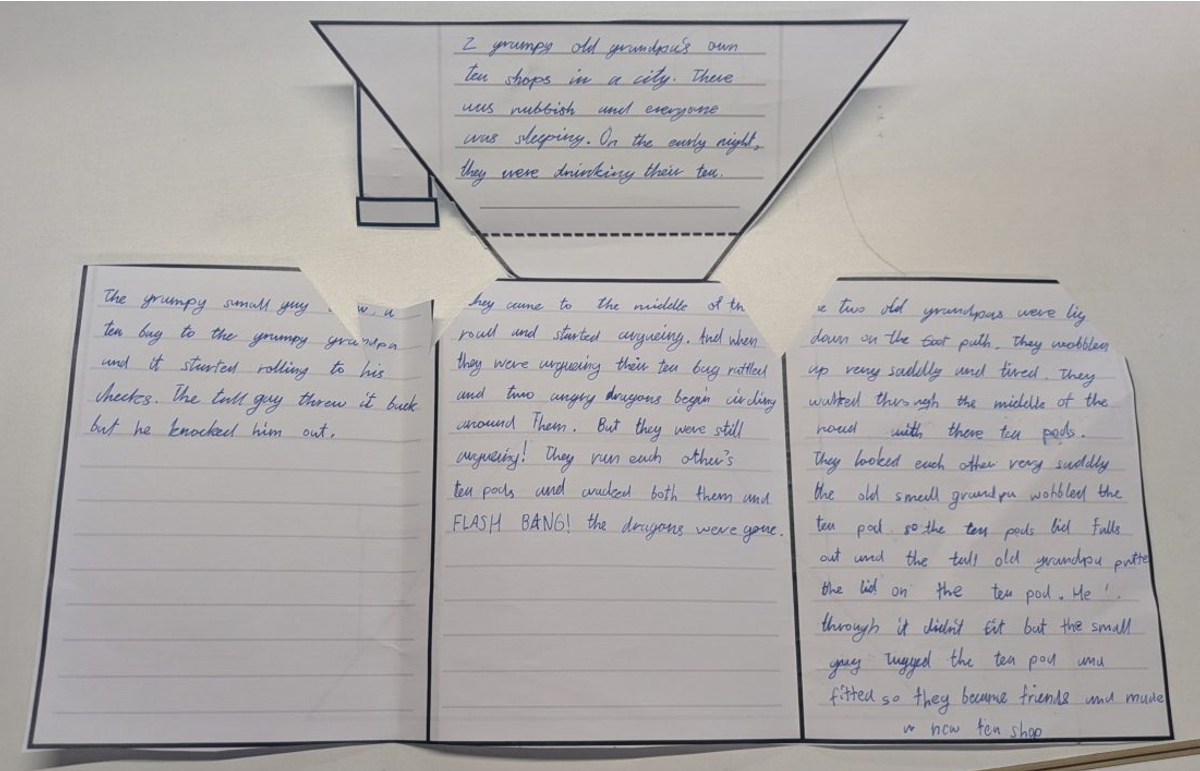 2 grumpy old grandpa's own
tea shops in a city. There
was rubbish and everyone
was sleeping. On the early night,
they were drinking their tea.
The grumpy small guy
tea bag to the grumpy grandpa
and it started rolling to his
cheeks. The tall guy threw it back
but he knocked him out.
hey came to the middle of th
road and started argueing. And when
they were argueing their tea bag rattled
and two angry dragons begin circling
around Them. But they were still
argueing! They run each other's
tea pods and cracked both them and
FLASH BANG! the dragons were gone.
e two old grandpas were lig
down on the foot path. They wobbled
up very saddly and tired. They
walked through the middle of the
road with there tea pods.
They looked each other very saddly
the old small grandpa wobbled the
tea pod so the tea pods lid falls
out and the tall old grandpa putte
the lid on the tea pod. He
through it didn't fit but the small
guy tugged the tea pod and
fitted so they became friends and made
a new tea shop